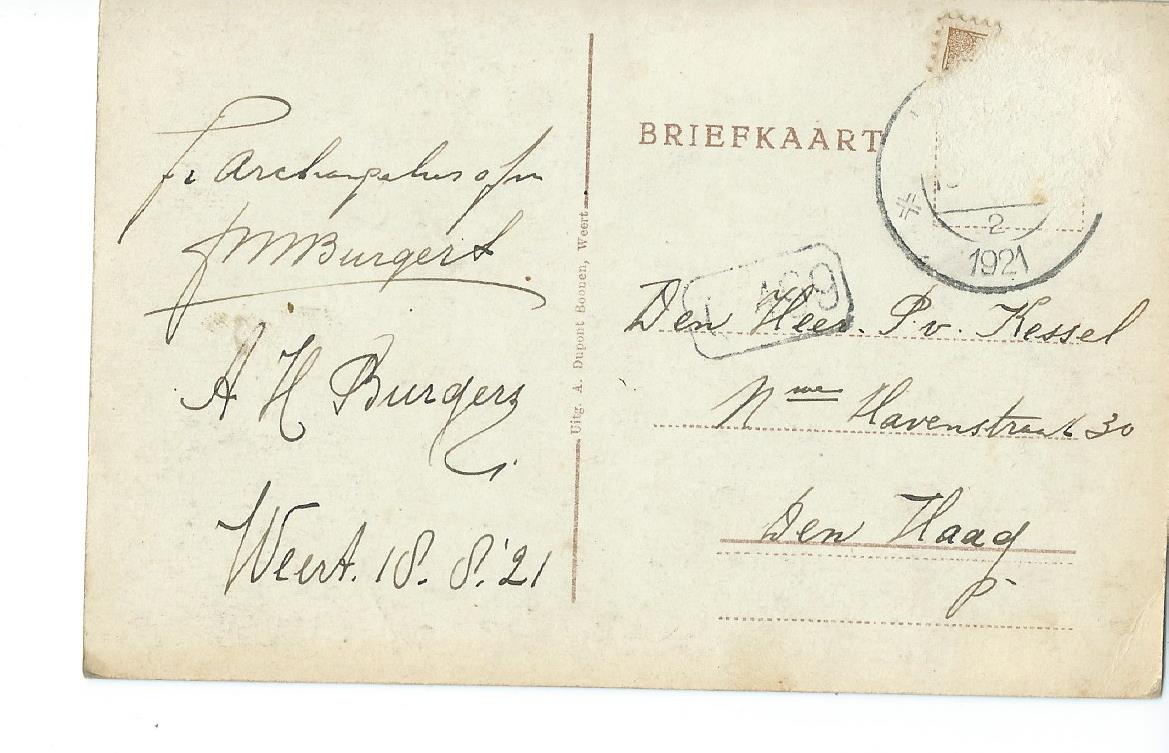 fr Archangelus ofm
JMMBurgers
A H Burgers
Weert. 18. 8.'21
Uitg. A. Dupont Boonen, Weert
BRIEFKAART
2
1921
Den Heer. P. v. Kessel
Nwe Havenstraat 30
Den Haag